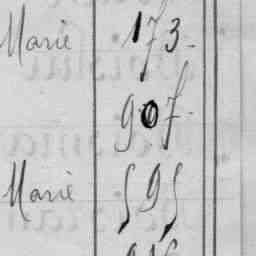 Marie 173.
907.
Marie 595